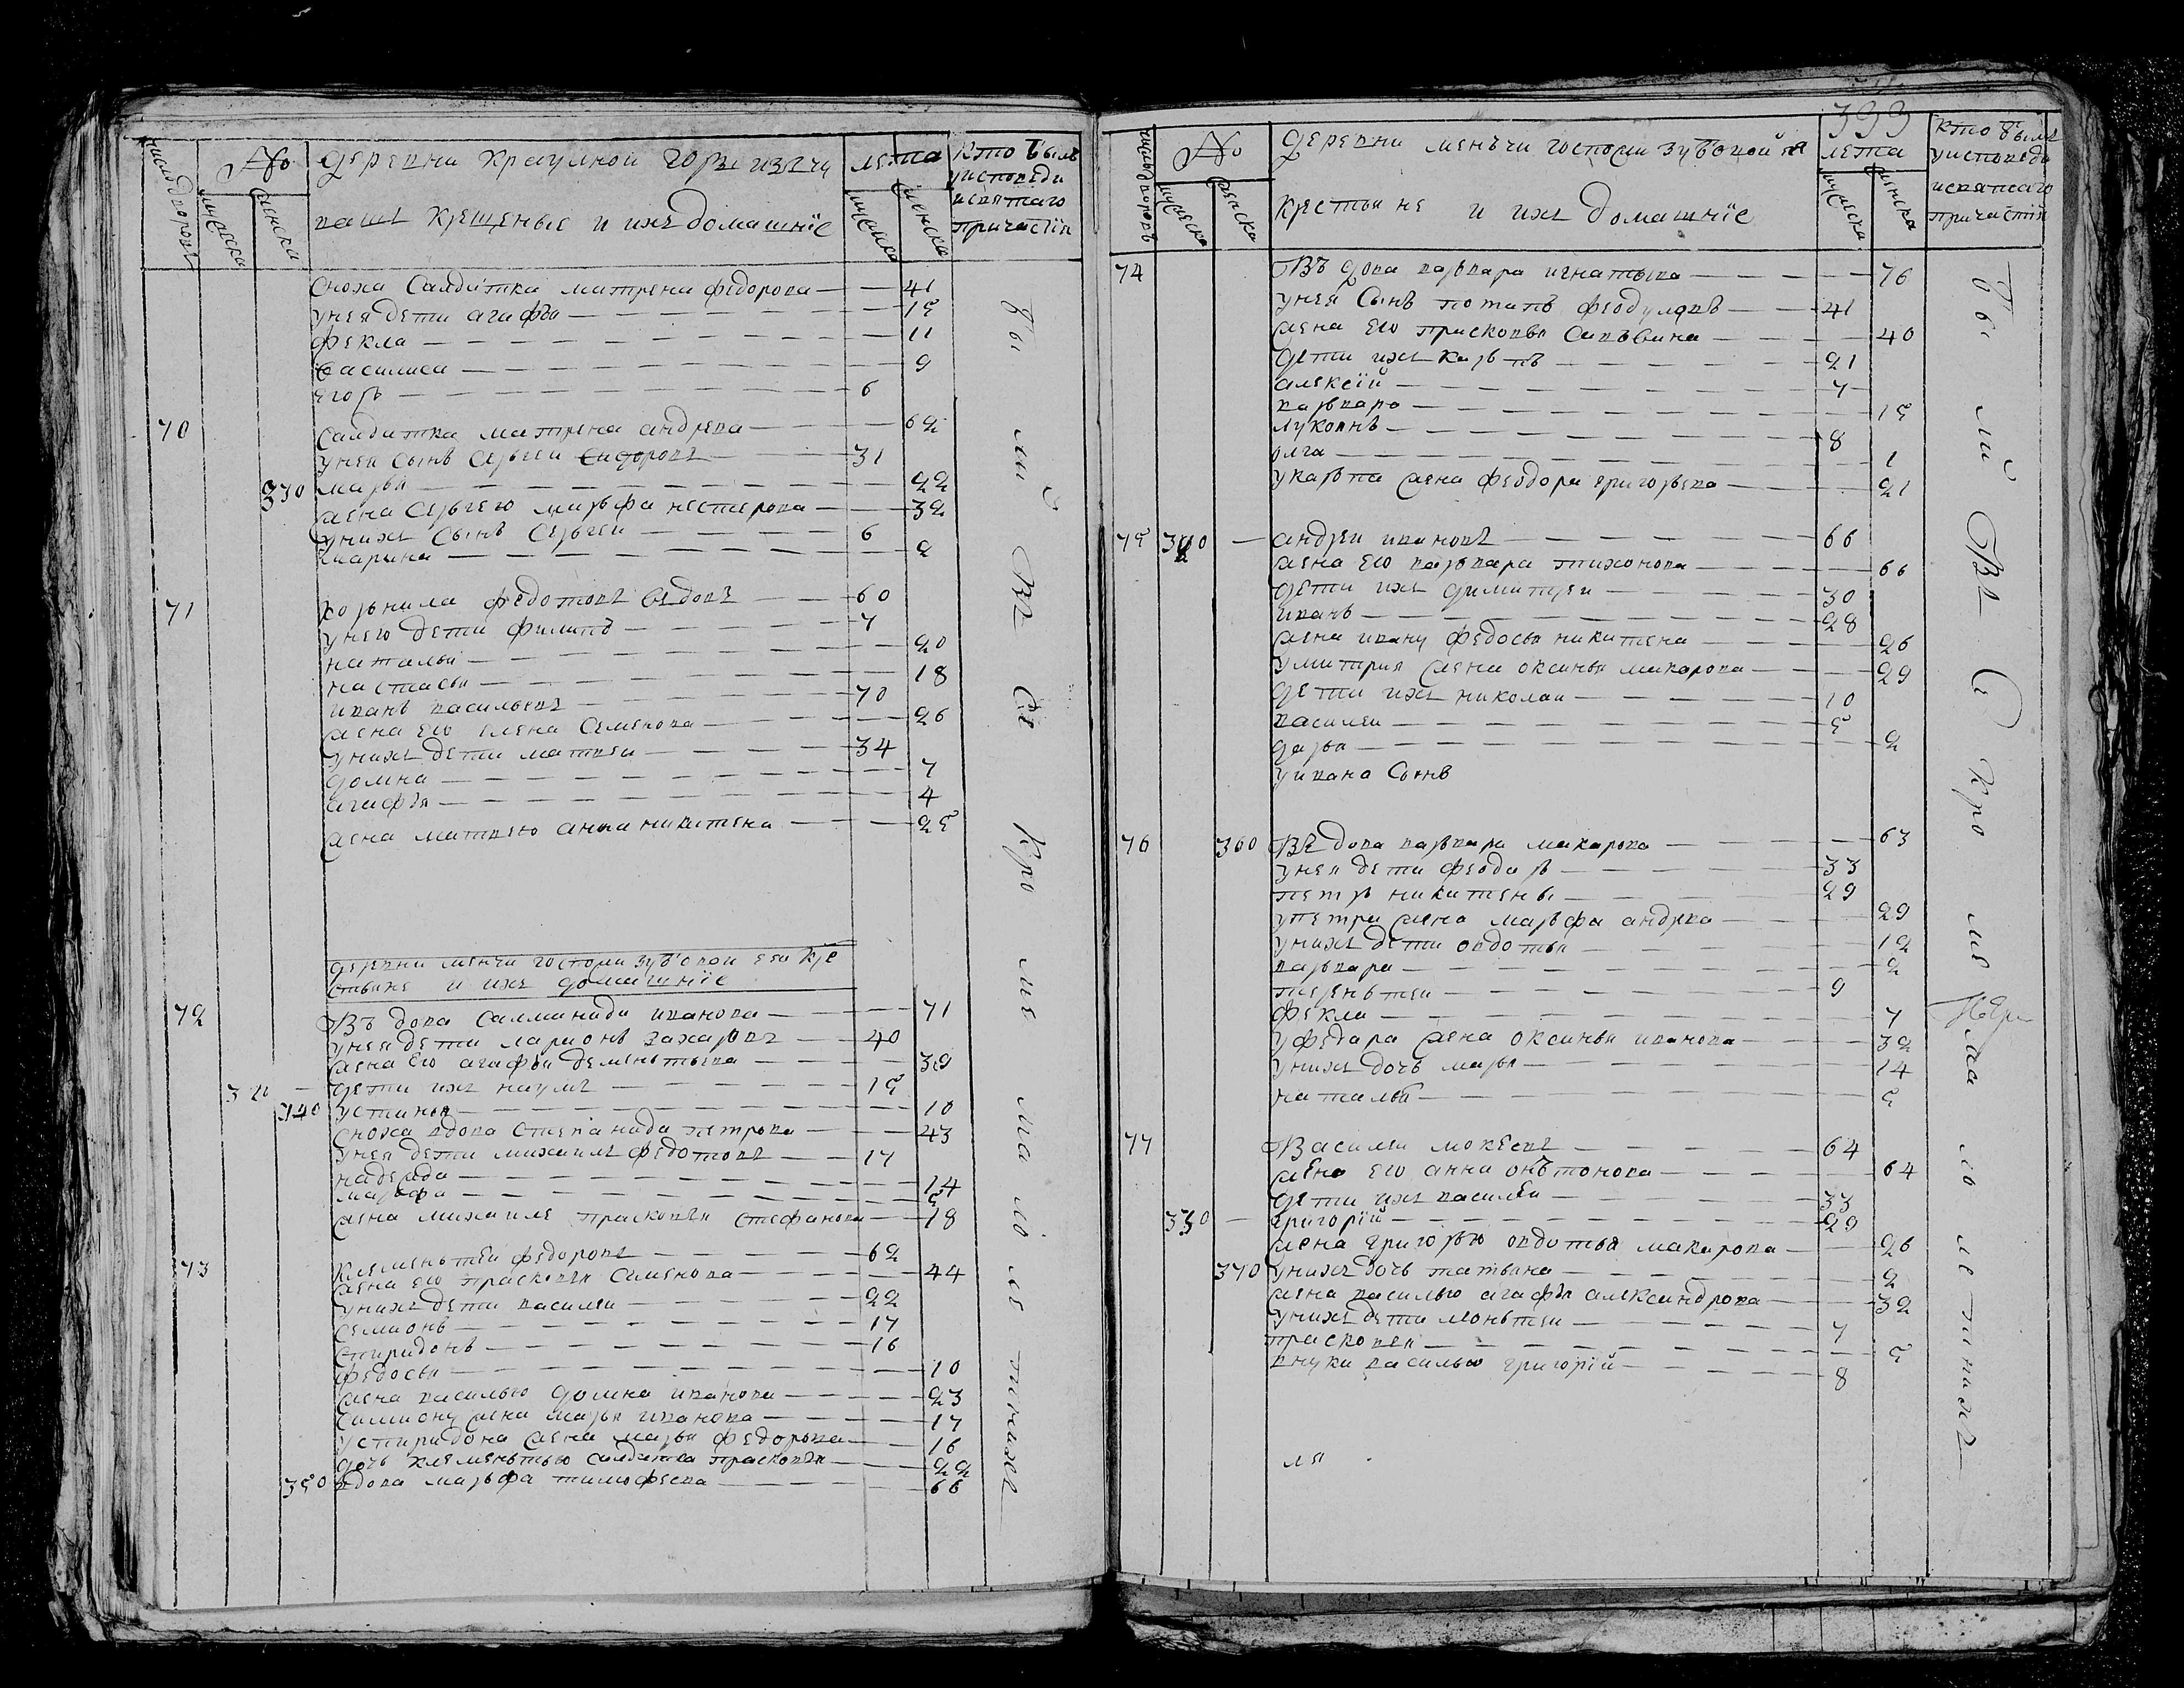 число дворовъ
№
мужеска
женска
деревни краулной горы изъ чу
вашъ крещеные и ихъ домашнїе
лета
мужска
женска
кто былъ
у исповеди
и святаго
причастїя
сноха салдатка матрена федорова — 41
у нея дети агафья — 15
фекла — 11
василиса — 9
егоръ — 6
70 салдатка матрена андрева — 62
у нея сынъ сергеи сидоровъ — 31
330 марья — 22
жена сергею марфа нестерова — 32
у нихъ сынъ сергеи — 6
марина — 2
71 корнила федотовъ вдовъ — 60
у него дети филипъ — 7
наталья — 20
настасья — 18
иванъ васильевъ — 70
жена его елена семенова — 26
у нихъ дети матвеи — 34
домна — 7
агафья — 4
жена матвею анна никитена — 25
деревни менчи госпожи зубовои ея кре
стьяне и ихъ домашнїе
72 вдова саламанида иванова — 71
у нея дети ларионъ захаровъ — 40
жена его агафья деменьтьева — 39
дети ихъ наумъ — 15
340 устинья — 10
сноха вдова степанида петрова — 43
у нея дети михаилъ федотовъ — 17
надежда — 14
марфа — 5
жена михаиле прасковья стефанова — 18
73 клеменьтеи федоровъ — 62
жена его прасковья семенова — 44
у нихъ дети василеи — 22
семионъ — 17
спиридонъ — 16
федосья — 10
жена василью домна иванова — 23
симиону жена марья иванова — 17
у спиридона жена марья федорова — 16
дочь клеменьтью салдатка прасковья — 22
350 вдова марфа тимофеева — 66
бы ли въ се кро ме ма ло ле тнихъ
393
число дворовъ
№
мужеска
женска
деревни менъчи госпожи зубовой ея
крестьяне и ихъ домашнїе
лета
мужеска
женска
кто былъ
у исповеди
и святаго
причастїя
74 вдова варвара игнатьева — 76
у нея сынъ потапъ феодуловъ — 41
жена его прасковья савъвина — 40
дети ихъ карпъ — 21
алексїй — 7
варвара — 15
лукоянъ — 8
олга — 1
у карпа жена феодора григорьева — 21
75 андреи ивановъ — 66
жена его варвара тихонова — 66
дети ихъ димитреи — 30
иванъ — 28
жена ивану федосья никитена — 26
у митрия жена оксинья макарова — 29
дети ихъ николаи — 10
василеи — 5
дарья — 2
у ивана сынъ
76 360 вдова варвара макарова — 63
у нея дети феодоръ — 33
петръ никитены — 29
у петра жена марфа андрева — 29
у нихъ дети овдотья — 12
варвара — 2
тереньтеи — 9
фекла — 7
у федара жена оксинья иванова — 32
у нихъ дочь марья — 14
наталья — 5
77 василеи мокеевъ — 64
жена его анна онътонова — 64
дети ихъ василеи — 33
330 — григорїй — 29
жена григорью овдотья макарова — 26
370 у нихъ дочь татьяна — 2
жена василью агафья александрова — 32
у нихъ дети леоньтеи — 7
прасковья — 5
внуки василью григорїй — 8
бы ли въ се кро ме ма ло ле тнихъ
ля